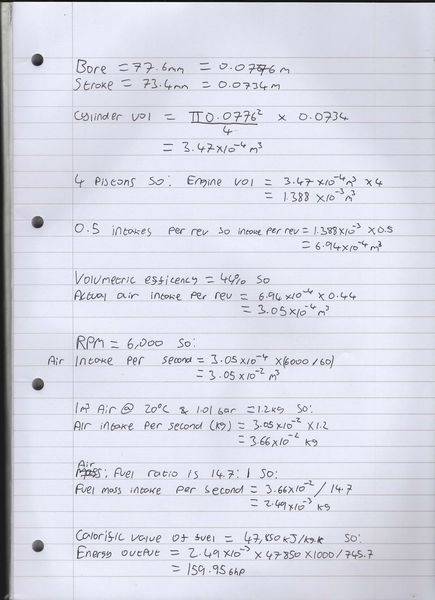 Bore = 77.6mm = 0.0776m
Stroke = 73.4mm = 0.0734m
Cylinder vol = π0.0776² / 4 × 0.0734
= 3.47×10⁻⁴ m³
4 Pistons so: Engine vol = 3.47×10⁻⁴m³ × 4
= 1.388 ×10⁻³ m³
0.5 intakes per rev so intake per rev = 1.388×10⁻³ × 0.5
= 6.94×10⁻⁴ m³
Volumetric efficency = 44% so
Actual air intake per rev = 6.94×10⁻⁴ × 0.44
= 3.05×10⁻⁴ m³
RPM = 6,000 so:
Air Intake per second = 3.05×10⁻⁴ ×(6000/60)
= 3.05×10⁻² m³
1m³ Air @ 20°C & 1.01 bar = 1.2kg so:
Air intake per second (kg) = 3.05×10⁻² × 1.2
= 3.66×10⁻² kg
Air: Fuel ratio is 14.7:1 so:
Fuel mass intake per second = 3.66×10⁻² / 14.7
= 2.49×10⁻³ kg
Calorific value of fuel = 47,850 kJ/kg so:
Energy output = 2.49×10⁻³ × 47850 × 1000 / 745.7
= 159.95bhp